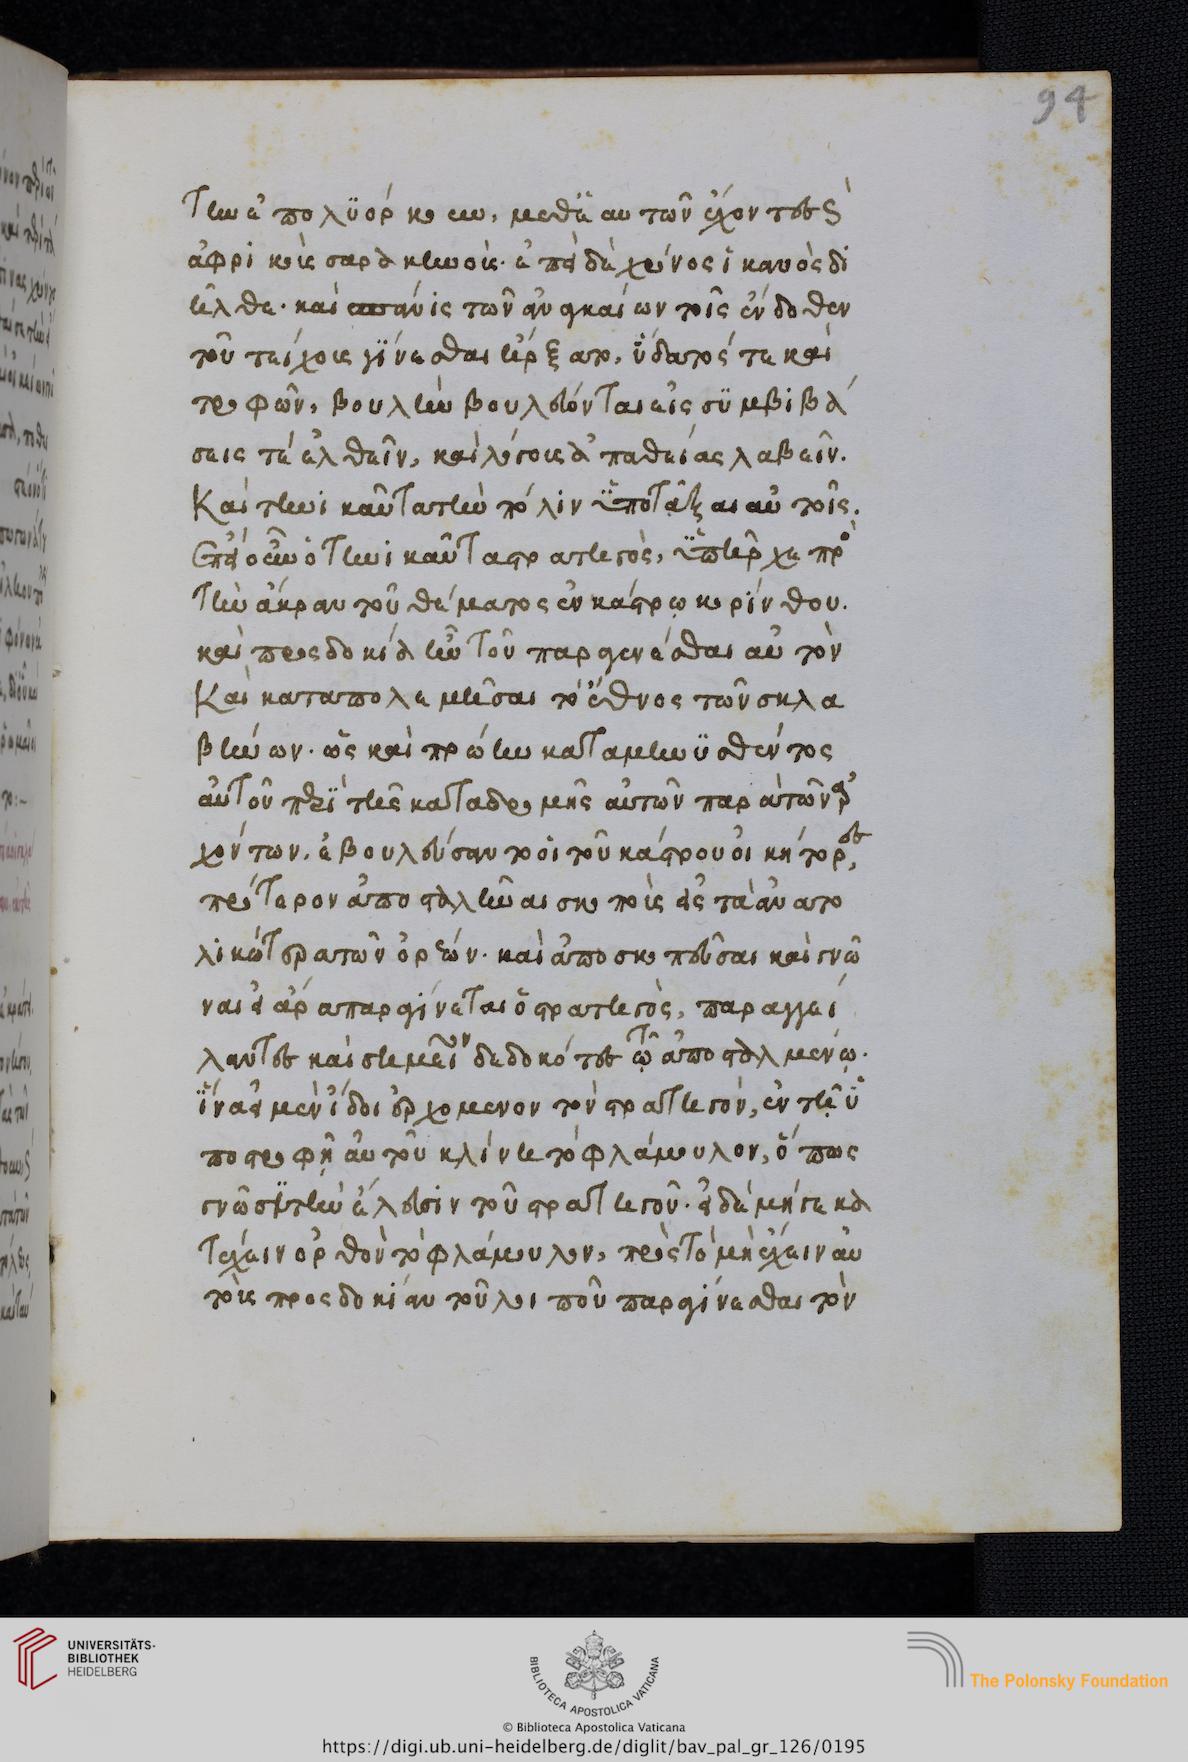 94
την ἐπολϋόρκουν, μεθ' ἑαυτῶν ἔχοντες καὶ
ἀφρικοὺς σαρακηνούς. ἐπεὶ δὲ χρόνος ἱκανὸς δι
ῆλθε. καὶ σπάνις τῶν ἀναγκαίων τοῖς ἔνδοθεν
τοῦ τείχους γΐνεσθαι ἤρξατο, ὕδατός τε καὶ
τροφῶν, βουλὴν βουλεύονται εἰς σϋμβιβά
σεις τὲ ἐλθεῖν, καὶ λόγους ἀπαθείας λαβεῖν.
Καὶ τηνικαῦτα τὴν πόλιν ὑποτάξαι αὐτοῖς.
Ἐπεὶ οὖν ὁ τηνικαῦτα στρατηγὸς, ὑπῆρχε πρὸς
τὴν ἄκραν τοῦ θέματος ἐν κάστρῳ κορίνθου.
καὶ προσδοκία ἦν τοῦ παραγενέσθαι αὐτὸν
Καὶ καταπολεμῆσαι τὸ ἔθνος τῶν σκλα
βήνων. ὡς καὶ πρώην καταμηνϋθέντος
αὐτοῦ περῒ τῆς καταδρομῆς αὐτῶν παρὰ τῶν ἀρ
χόντων, ἐβουλεύσαντο οἱ τοῦ κάστρου οἰκήτορες,
πρότερον ἀποστεῖλαι σκοποὺς εἰς τὰ ἀνατο
λικώτερα τῶν ὀρέων. καὶ ἀποσκοπεῦσαι καὶ γνῶ
ναι εἰ ἄρα παραγίνεται ὁ στρατηγὸς, παραγγεί
λαντες καὶ σημεῖον δεδοκότες τῷ ἀποσταλμένῳ.
ἵνα εἰ μὲν ἴδοι ἐρχόμενον τὸν στρατηγόν, ἐν τῇ ὑ
ποστροφῇ αὐτοῦ κλίνη τὸ φλάμουλον, ὅπως
γνῶσϊ τὴν ἔλευσιν τοῦ στρατηγοῦ. εἰ δὲ μήγε κα
τέχειν ὀρθὸν τὸ φλάμουλον, πρὸς τὸ μὴ ἔχειν αὐ
τοὺς προσδοκίαν τοῦ λοιποῦ παραγίνεσθαι τὸν
UNIVERSITÄTS-
BIBLIOTHEK
HEIDELBERG
BIBLIOTECA APOSTOLICA VATICANA
© Biblioteca Apostolica Vaticana
The Polonsky Foundation
https://digi.ub.uni-heidelberg.de/diglit/bav_pal_gr_126/0195